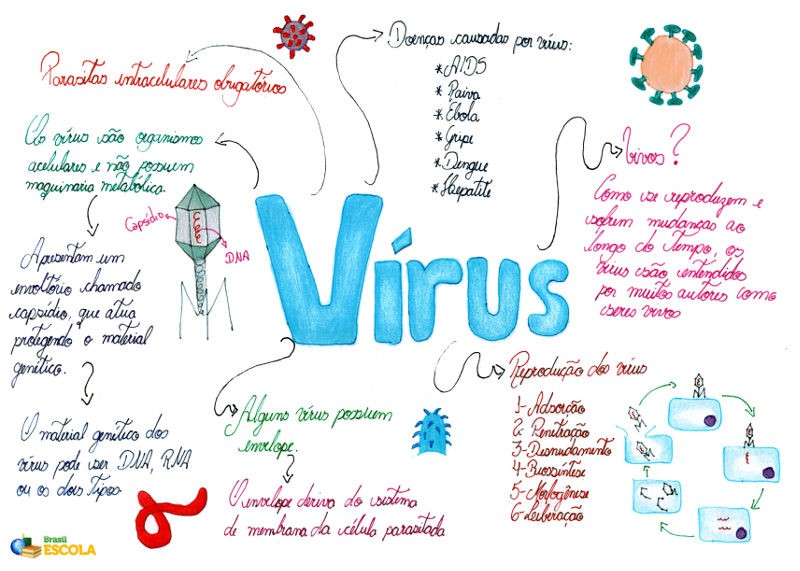 Parasitas intracelulares obrigatórios
Os vírus são organismos
acelulares e não possuem
maquinaria metabólica.
Apresentam um
envoltório chamado
capsídio, que atua
protegendo o material
genético.
O material genético dos
vírus pode ser DNA, RNA
ou os dois tipos
Capsídio
DNA
Vírus
Doenças causadas por vírus:
* AIDS
* Raiva
* Ebola
* Gripe
* Dengue
* Hepatite
Vivos?
Como se reproduzem e
sofrem mudanças ao
longo do tempo, os
vírus são entendidos
por muitos autores como
seres vivos
Alguns vírus possuem
envelope.
O envelope deriva do sistema
de membrana da célula parasitada
Reprodução dos vírus
1- Adsorção
2- Penetração
3- Desnudamento
4- Biossíntese
5- Morfogênese
6- Liberação
Brasil
ESCOLA